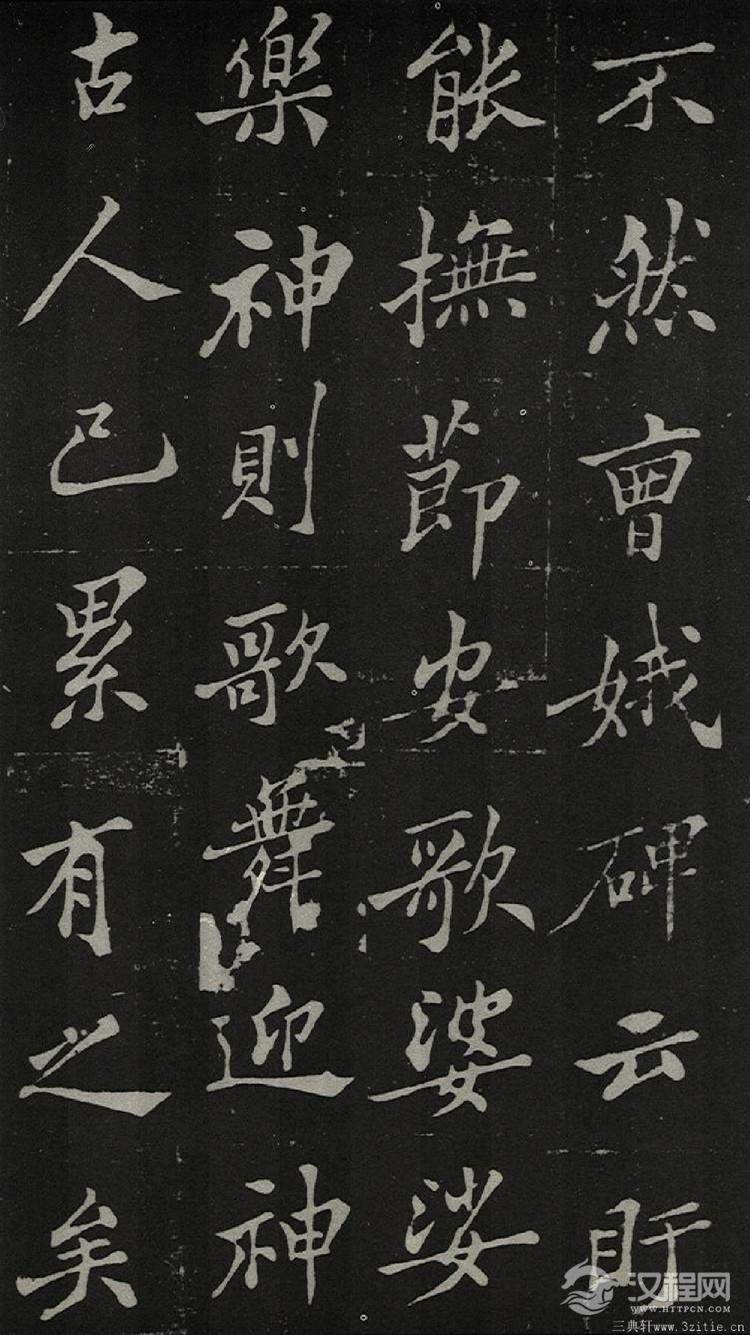 不然曹娥碑云盱
能撫節安歌婆娑
樂神則歌舞迎神
古人已累有之矣
汉程网
WWW.HTTPCN.COM
三典轩www.3zitie.cn